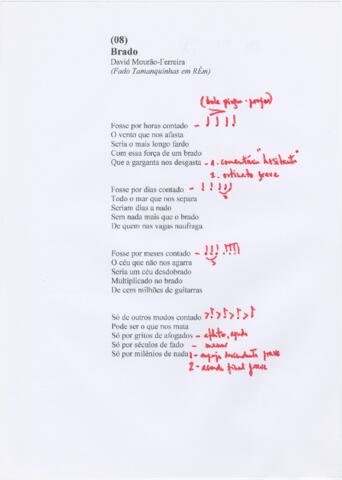 (08)
Brado
David Mourão-Ferreira
(Fado Tamanquinhas em RÉm)
Fosse por horas contado -
O vento que nos afasta
Seria o mais longo fardo
Com essa força de um brado
Que a garganta nos desgasta - 1. comentário "hesitante"
2. ostinato grave
Fosse por dias contado -
Todo o mar que nos separa
Seriam dias a nado
Sem nada mais que o brado
De quem nas vagas naufraga
Fosse por meses contado -
O céu que não nos agarra
Seria um céu desdobrado
Multiplicado no brado
De cem milhões de guitarras
Só de outros modos contado
Pode ser o que nos mata
Só por gritos de afogados - aflito, agudo
Só por séculos de fado -
Só por milénios de nada 1 - arpejo descendente grave
2 - acorde final grave